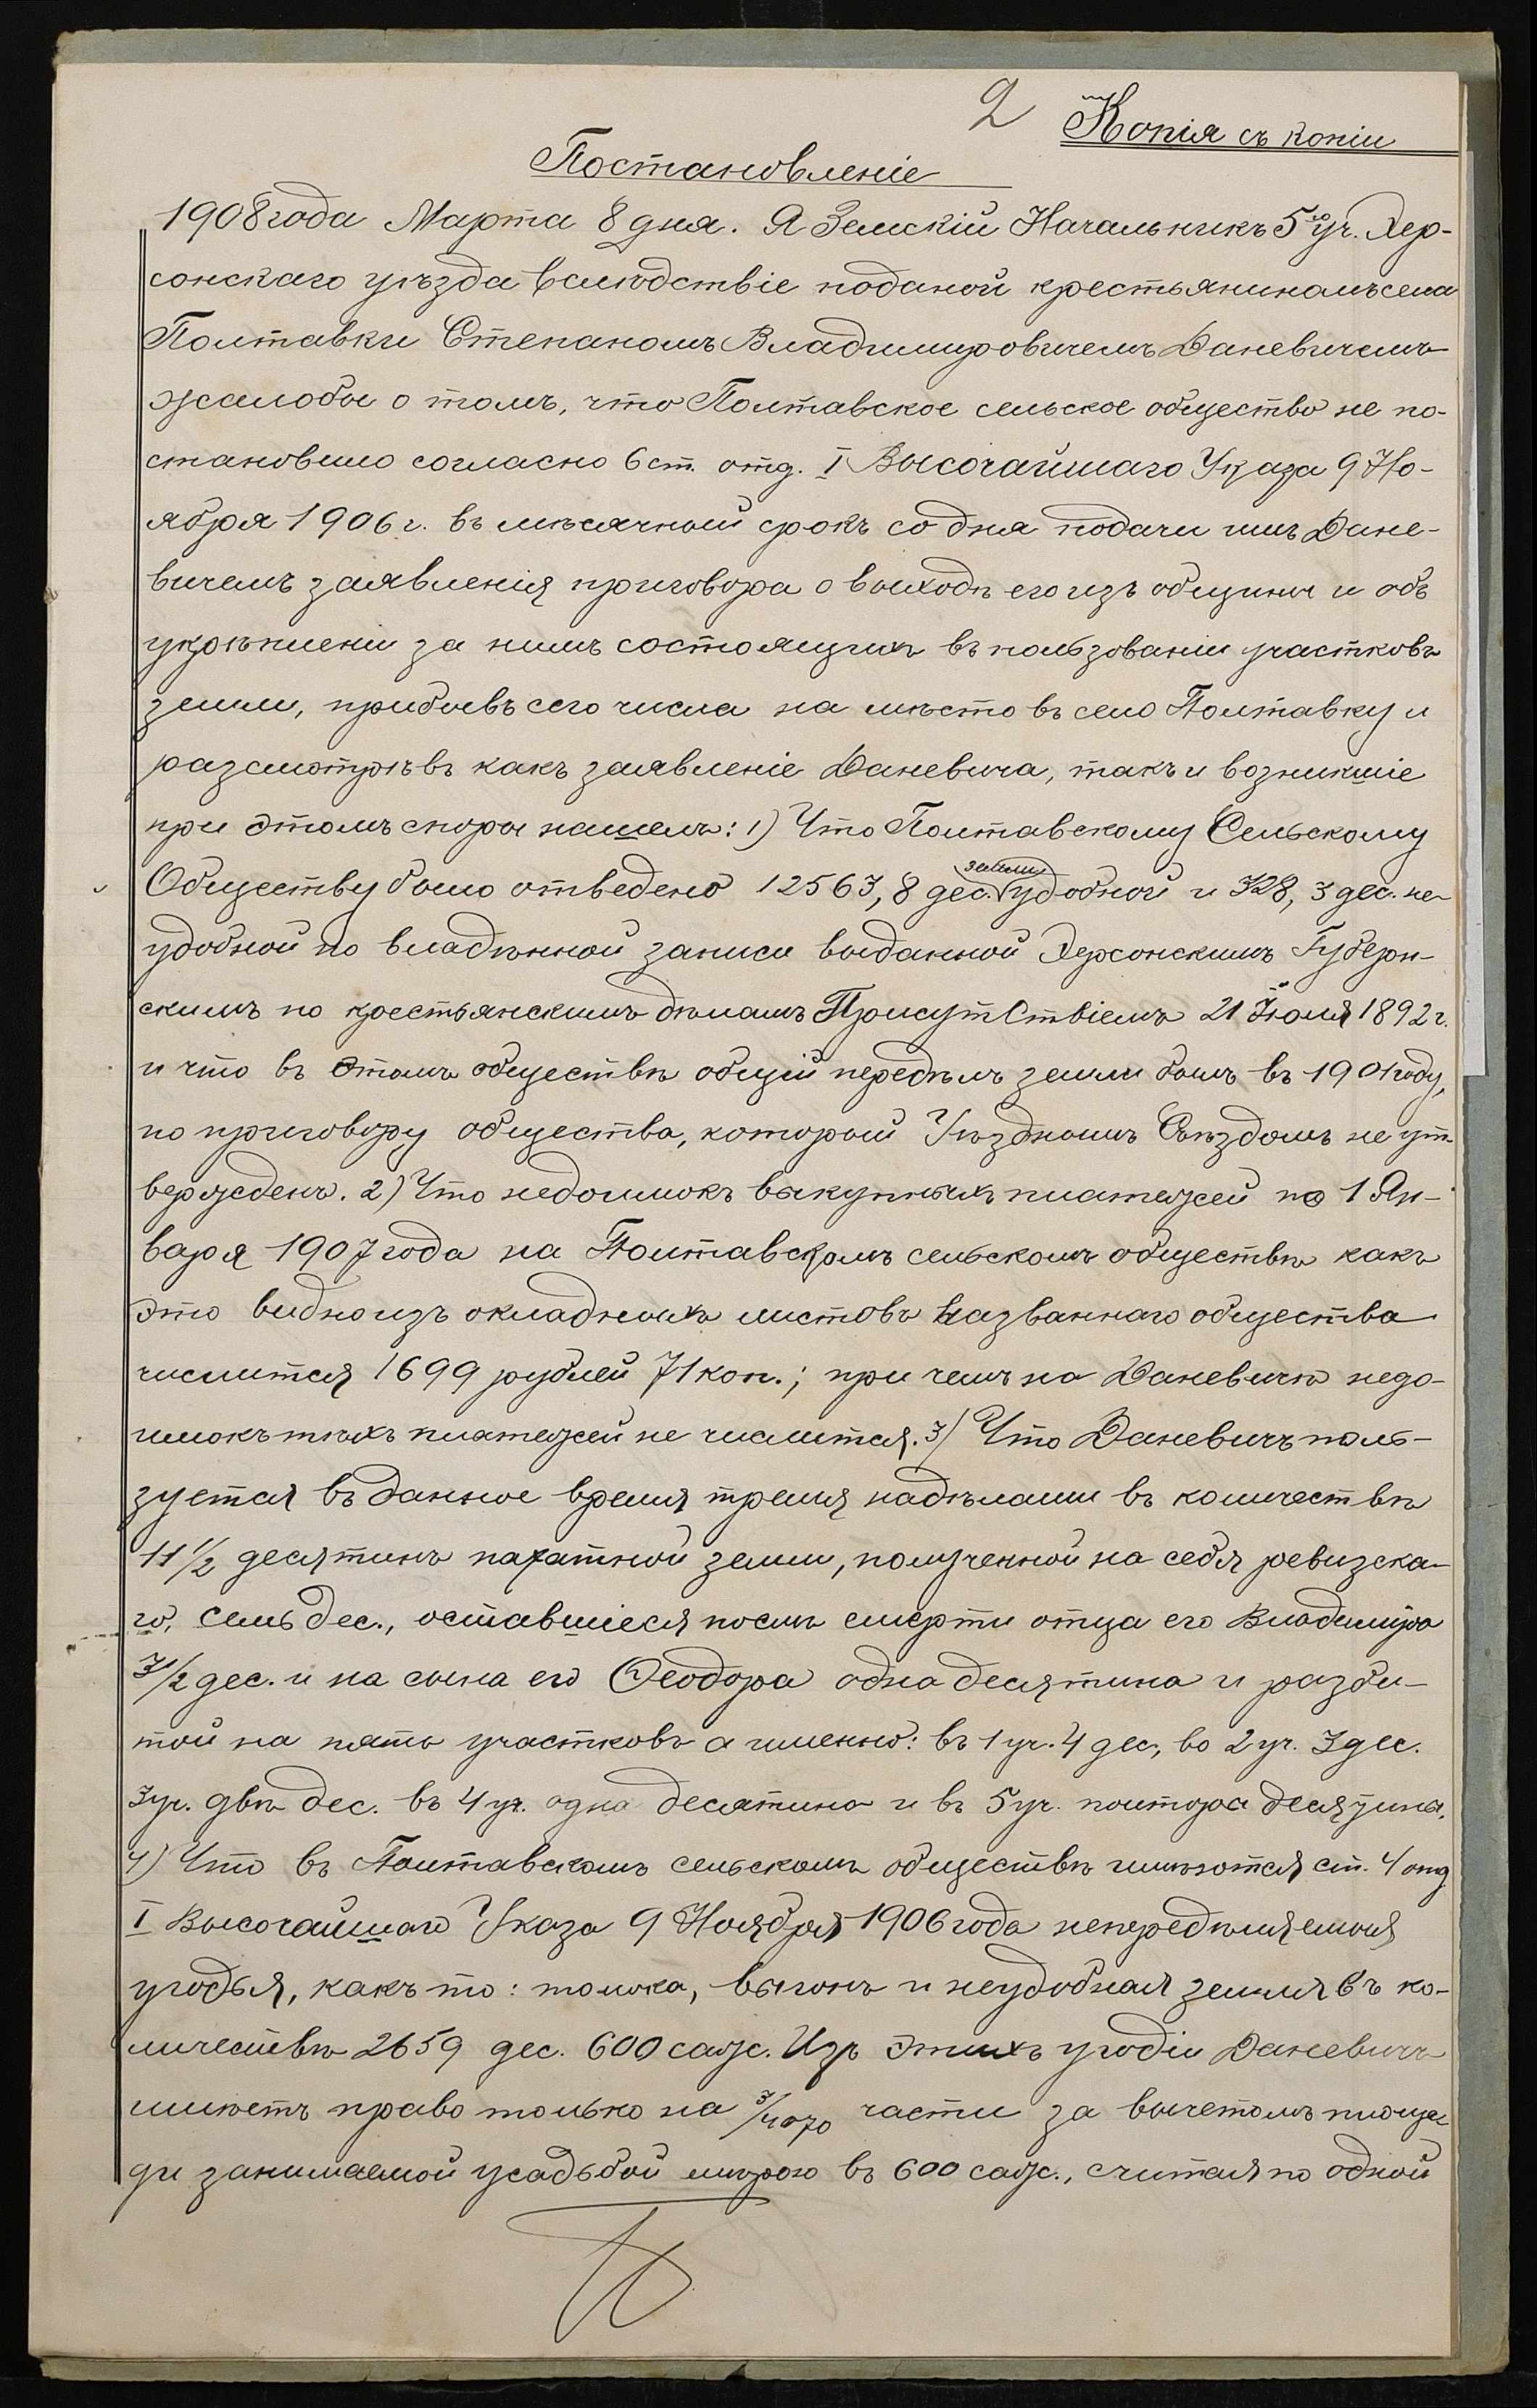 2
Копія съ копіи
Постановленіе
1908 года Марта 8 дня. Я Земскій Начальникъ 5го уч. Хер-
сонскаго уѣзда вслѣдствіе поданой крестьяниномъ села
Полтавки Степаномъ Владимировичемъ Даневичемъ
жалобы о томъ, что Полтавское сельское общество не по-
становило согласно 6 ст. отд. I Высочайшаго Указа 9 Но-
ября 1906 г. въ мѣсячный срокъ со дня подачи имъ Дане-
вичемъ заявленія приговора о выходѣ его изъ общины и объ
укрѣпленіи за нимъ состоящихъ въ пользованіи участковъ
земли, прибывъ сего числа на мѣсто въ село Полтавку и
разсмотрѣвъ какъ заявленіе Даневича, такъ и возникшіе
при этомъ споры нашелъ: 1) Что Полтавскому Сельскому
Обществу было отведено 12563,8 дес. земли удобной и 328,3 дес. не-
удобной по владѣнной записи выданной Херсонскимъ Губерн-
скимъ по крестьянскимъ дѣламъ Присутствіемъ 21 Іюля 1892 г.
и что въ этомъ обществѣ общій передѣлъ земли былъ въ 1901 году,
по приговору общества, который Уѣзднымъ Съѣздомъ не ут-
вержденъ. 2) Что недоимокъ выкупныхъ платежей по 1 Ян-
варя 1907 года на Полтавскомъ сельскомъ обществѣ какъ
это видно изъ окладныхъ листовъ названнаго общества
числится 1699 рублей 71 коп.; при чемъ на Даневичѣ недо-
имокъ тѣхъ платежей не числится. 3) Что Даневичъ поль-
зуется въ данное время тремя надѣлами въ количествѣ
11 1/2 десятинъ пахатной земли, полученной на себя ревизска-
го, семь дес., оставшіеся послѣ смерти отца его Владиміра
3 1/2 дес. и на сына его Ѳеодора одна десятина и разби-
той на пять участковъ а именно: въ 1 уч. 4 дес., во 2 уч. 3 дес.
3 уч. двѣ дес. въ 4 уч. одна десятина и въ 5 уч. полтора десятины.
4) Что въ Полтавскомъ сельскомъ обществѣ имѣются ст. 4 отд
I Высочайшаго Указа 9 Ноября 1906 года непередѣляемыя
угодья, какъ то: толока, выгонъ и неудобная земля въ ко-
личествѣ 2659 дес. 600 саж. Изъ этихъ угодій Даневичъ
имѣетъ право только на 3/4070 части за вычетомъ площа-
ди занимаемой усадьбой мѣрою въ 600 саж., считая по одной